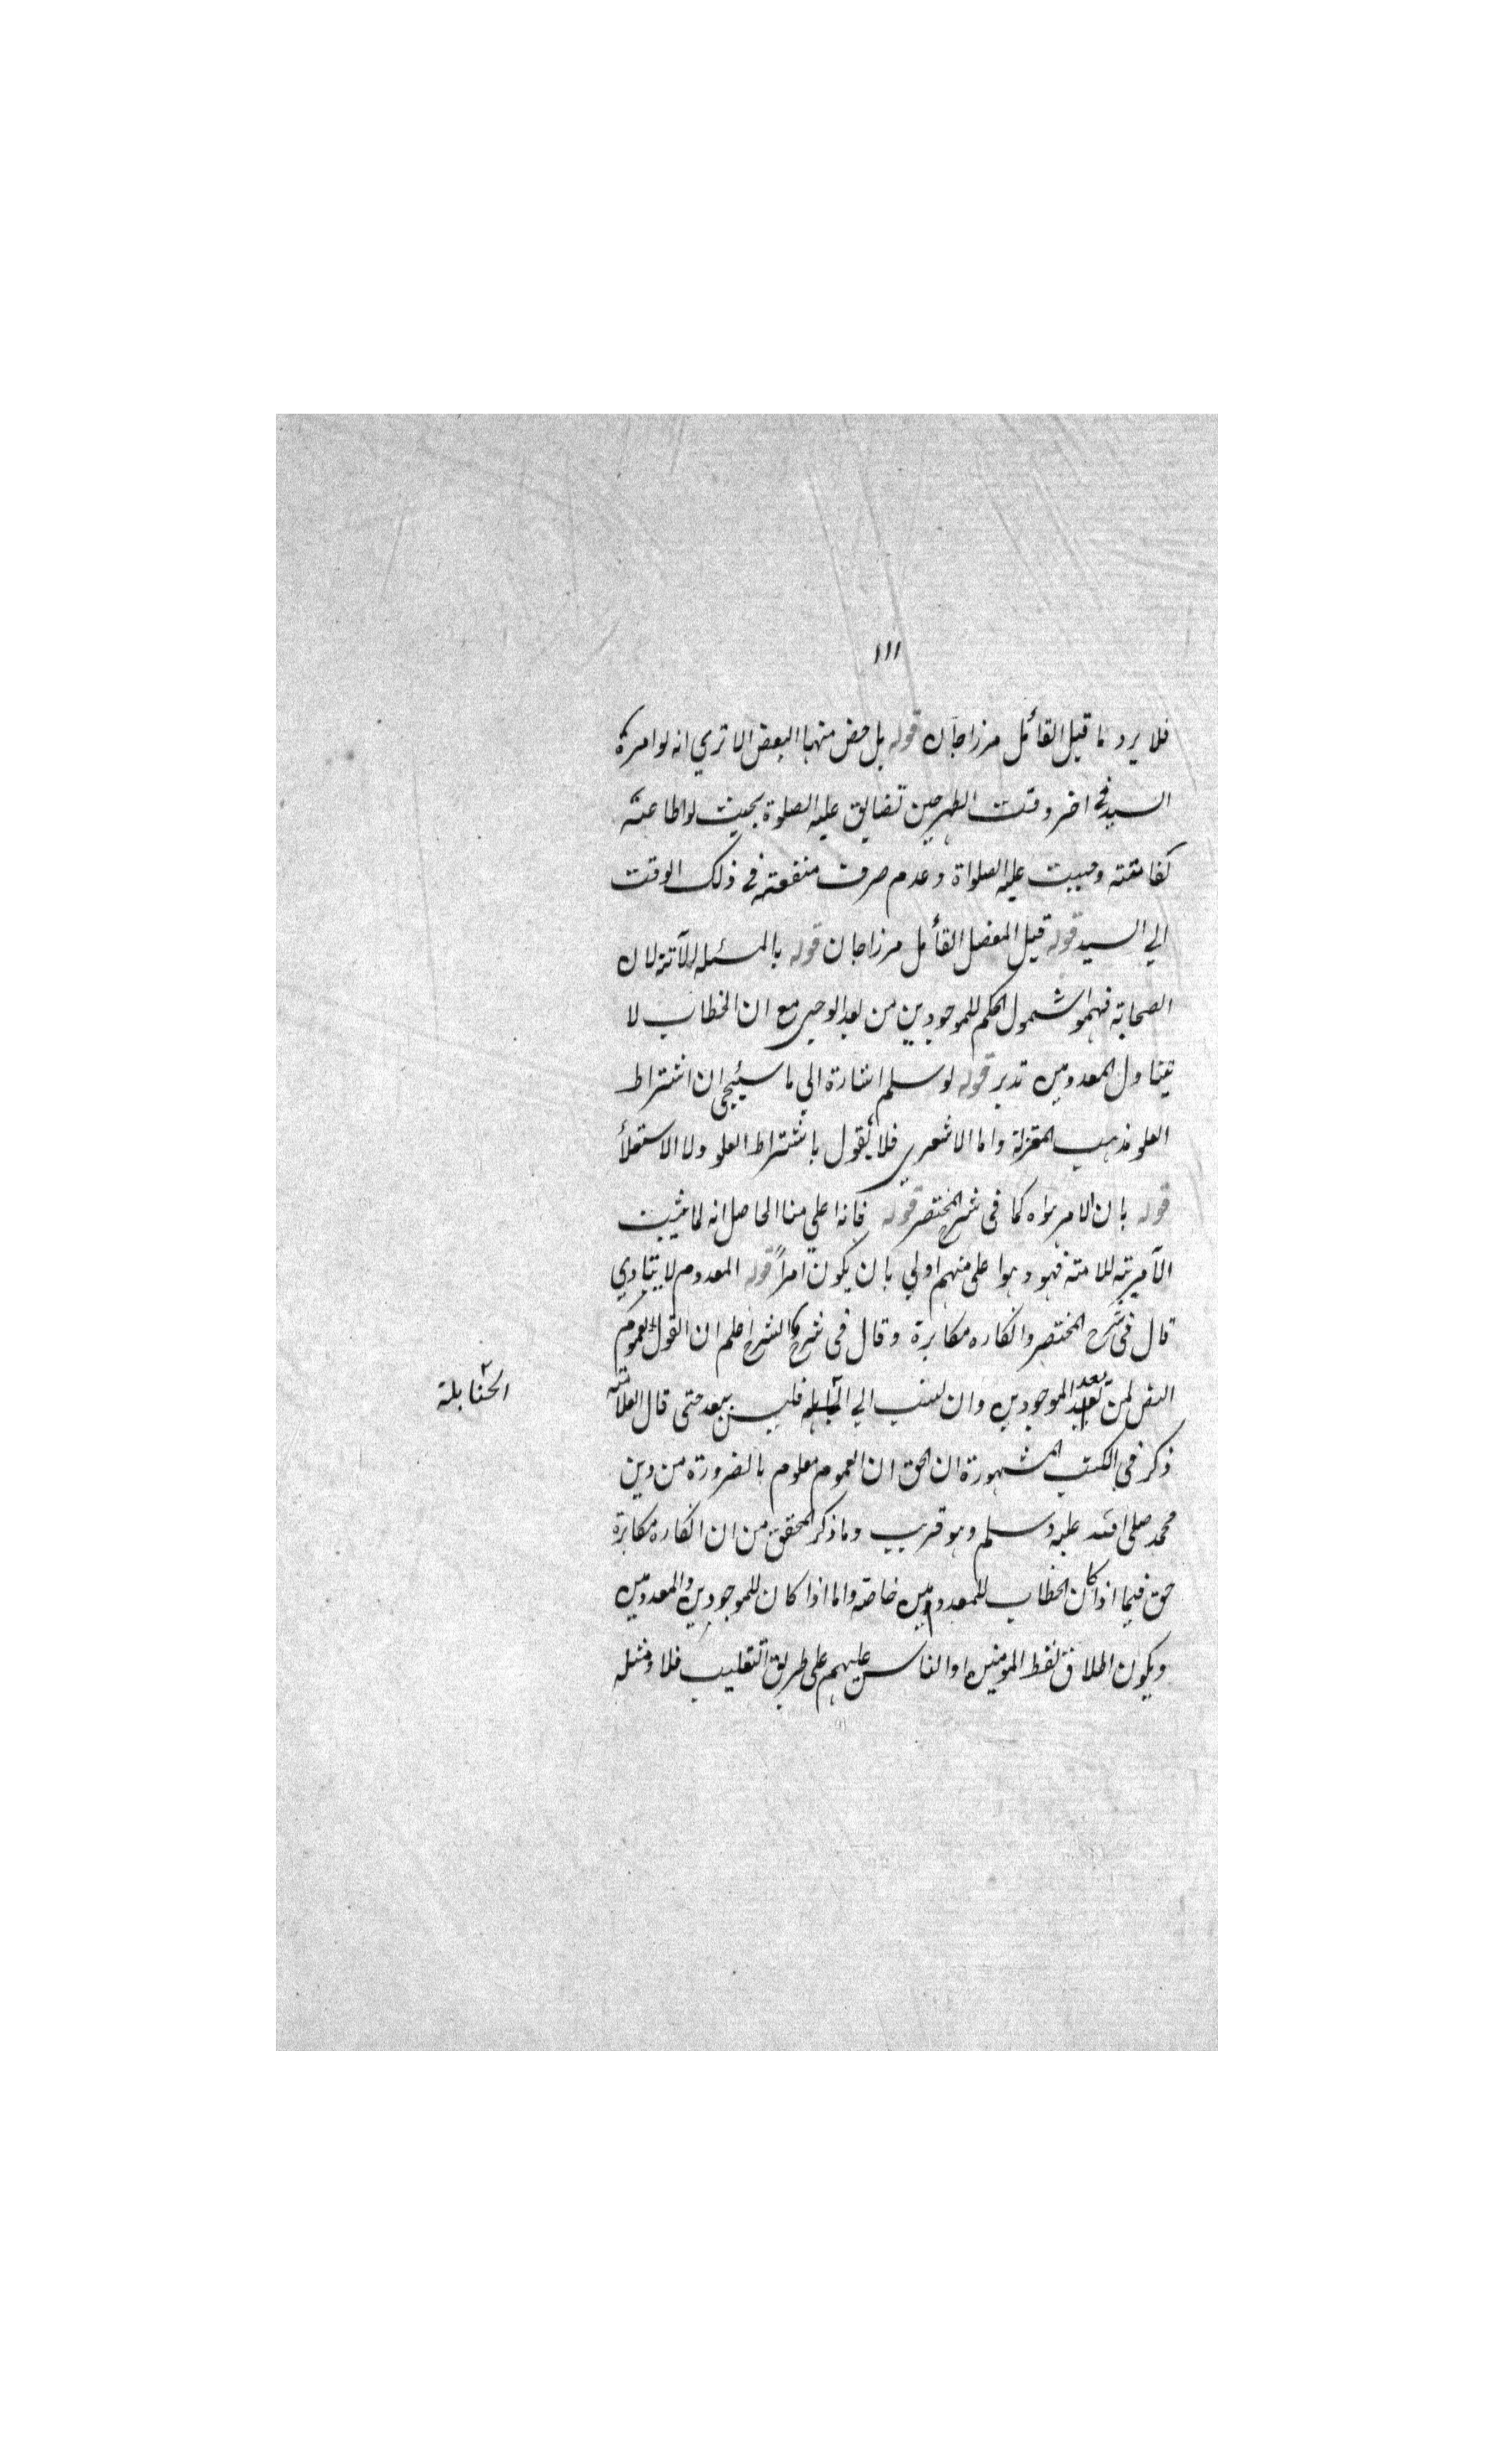 ١١١
فلا يرد ما قيل القائل مرزاجان قوله بل خص منها البعض الا تري انه لو امره
السيد في اخر وقت الظهر حين تضايق عليه الصلوة بحيث لو اطاعته
لفاتته وجبت عليه الصلواة وعدم صرف منفعته في ذلك الوقت
الي السيد قوله قيل المفصل القائل مرزاجان قوله بالمسئلة الآتية لان
الصحابة فهموا شمول الحكم للموجودين من بعد الوحى مع ان الخطاب لا
يتناول المعدومين تدبر قوله لو سلم اشارة الي ما سيئجي ان اشتراط
العلو مذهب المعتزلة واما الاشعري فلا يقول باشتراط العلو ولا الاستعلأ
قوله بان الامر سواه كما فى شرح المختصر قوله فانه اعلي منا الحاصل انه لما يثبت
الآمرية للامة فهو وهوا على منهم اولي بان يكون آمراً قوله المعدوم لا ينادي
قال فى شرح المختصر وانكاره مكابرة وقال فى شرح الشرح اعلم ان القول بعموم
النص لمن بعد الموجودين وان نسب الي الحنابلة فليس ببعد حتى قال العلامة
الحنابلة
ذكر فى الكتب المشهورة ان الحق ان العموم معلوم بالضرورة من دين
محمد صلى الله عليه وسلم وهو قريب وما ذكر المحقق من ان انكاره مكابرة
حق فيما اذا كان الخطاب للمعدومين خاصة واما اذا كان للموجودين والمعدومين
ويكون اطلاق لفظ المومنين او الناس عليهم على طريق التغليب فلا ومثله